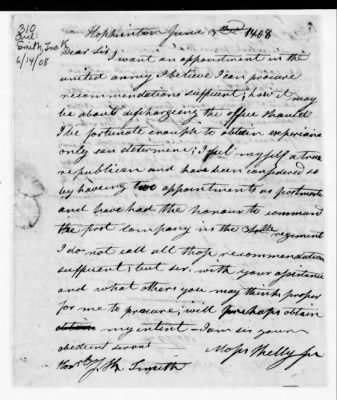 310
Enc:
Smith, Jno.
6/14/08
Hopkinton June 1808
Dear Sir,
I want an appointment in the
united army I beleive I can procure
recommendations suffecent; how it may
be about discharging the office should
I be fortunate enough to obtain experiance
only can determine; I feel myself a true
republican and have been considered so
by haveing two appointments as postmaste
and have had the honour to command
the post company in the regiment
I do not call all those recommendation
suffecent; but sir. with your assistance
and what others you may think propor
for me to procure; will perhaps obtain
my entent - I am sir your
obedient servant
Moses Kelly Jr
Honble J. Smith